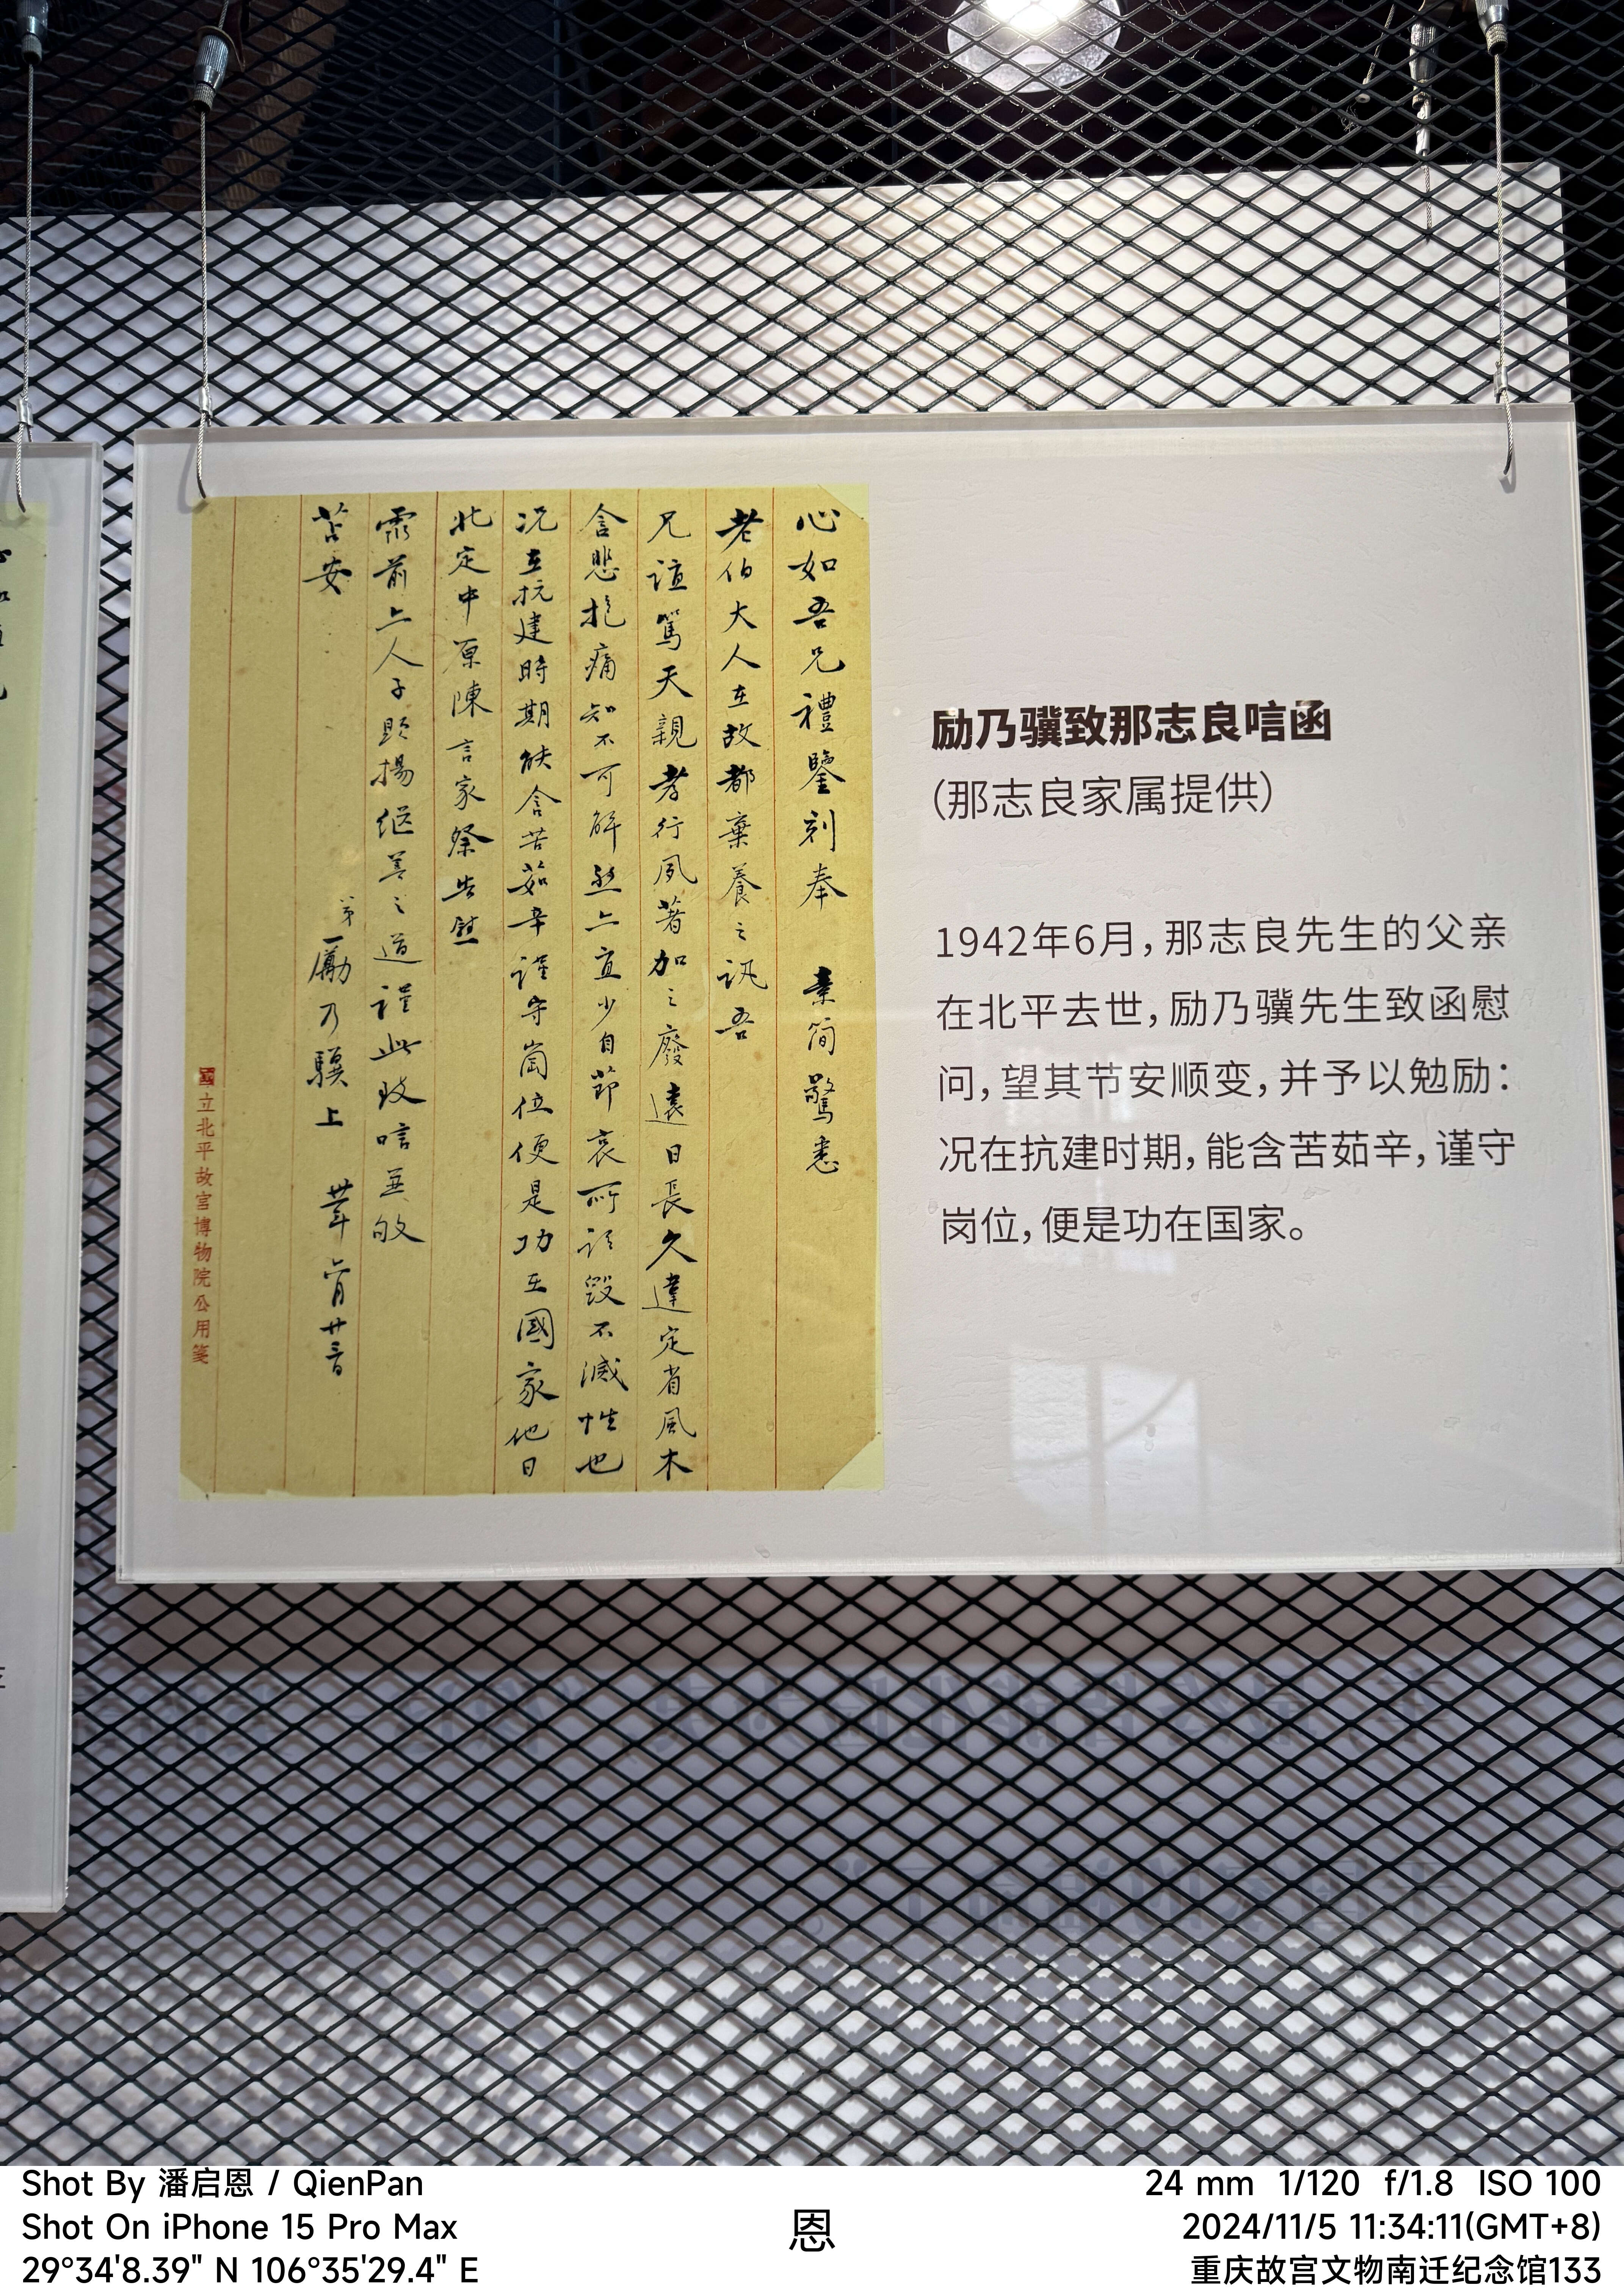 心如吾兄禮鑒刻奉 素简驚悉
老伯大人在故都棄養之訊吾
兄誼篤天親孝行夙著加之廢遠日長久違定省風木
含悲抱痛知不可解然亦宜少自節哀所謂毀不滅性也
况在抗建時期能含苦茹辛謹守崗位便是功在國家他日
北定中原陳言家祭告慰
靈前亦人子顯揚繼善之道謹此致唁並敂
苦安
弟勵乃驥上 卅一年六月廿三日
國立北平故宮博物院公用箋
励乃骥致那志良唁函
（那志良家属提供）
1942年6月，那志良先生的父亲
在北平去世，励乃骥先生致函慰
问，望其节安顺变，并予以勉励：
况在抗建时期，能含苦茹辛，谨守
岗位，便是功在国家。
Shot By 潘启恩 / QienPan
Shot On iPhone 15 Pro Max
29°34'8.39" N 106°35'29.4" E
恩
24 mm 1/120 f/1.8 ISO 100
2024/11/5 11:34:11(GMT+8)
重庆故宫文物南迁纪念馆133